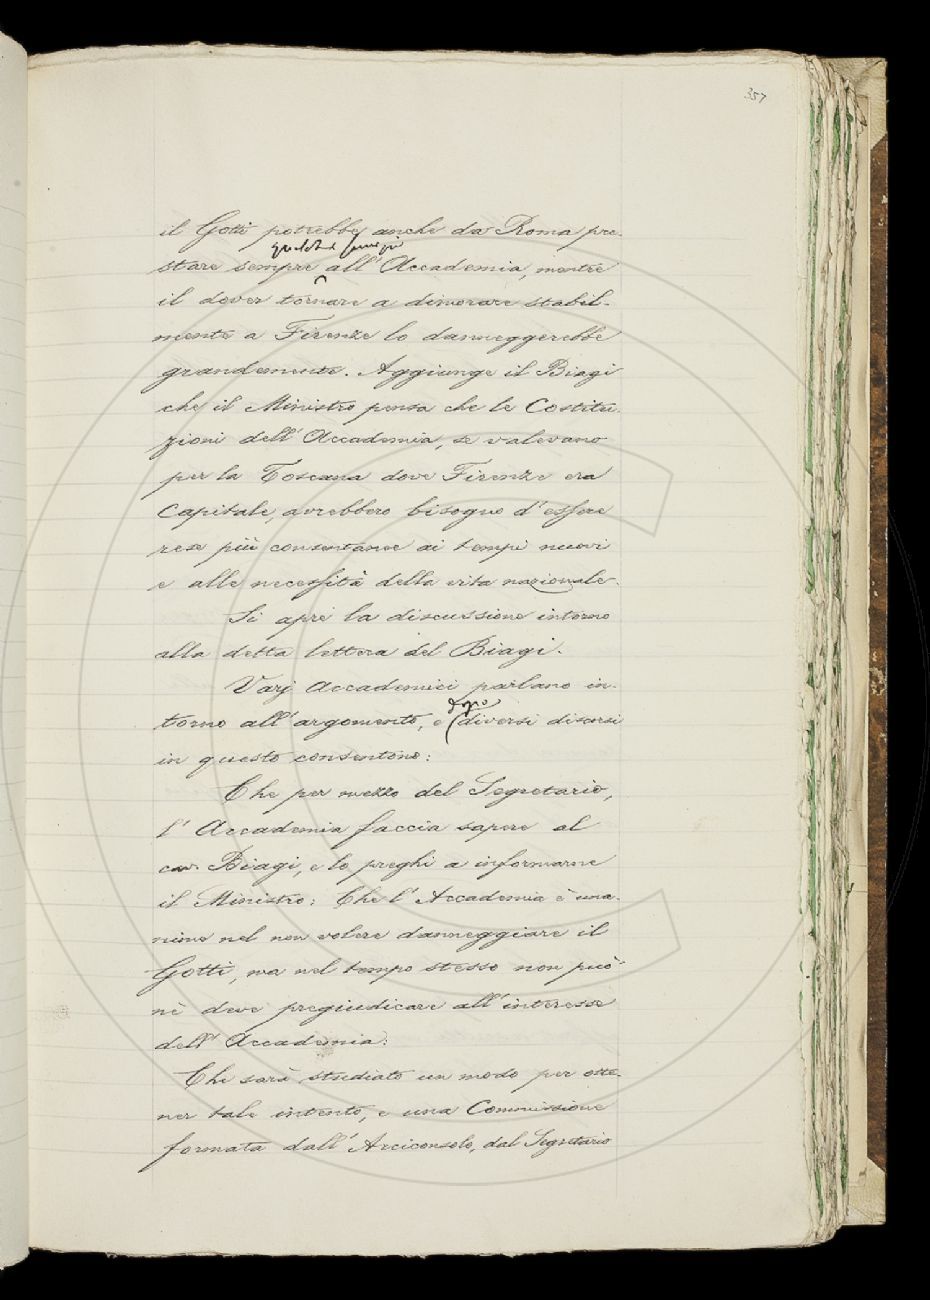 357
il Gotti potrebbe anche da Roma pre-
qualche servizio
stare sempre all'Accademia, mentre
il dover tornare a dimorare stabil-
mente a Firenze lo danneggerebbe
grandemente. Aggiunge il Biagi
che il Ministro pensa che le Costitu-
zioni dell'Accademia, se valevano
per la Toscana dove Firenze era
Capitale, avrebbero bisogno d'essere
rese più consentanee ai tempi nuovi
e alle necessità della vita nazionale.
Si aprì la discussione intorno
alla detta lettera del Biagi.
Varj Accademici parlano in-
dopo
torno all'argomento, e diversi discorsi
in questo consentono:
Che per mezzo del Segretario,
l'Accademia faccia sapere al
cav. Biagi, e lo preghi a informarne
il Ministro: Che l'Accademia è una-
nime nel non volere danneggiare il
Gotti, ma nel tempo stesso non può
nè deve pregiudicare all'interesse
dell'Accademia:
Che sarà studiato un modo per otte-
ner tale intento, e una Commissione
formata dall'Arciconsolo, dal Segretario